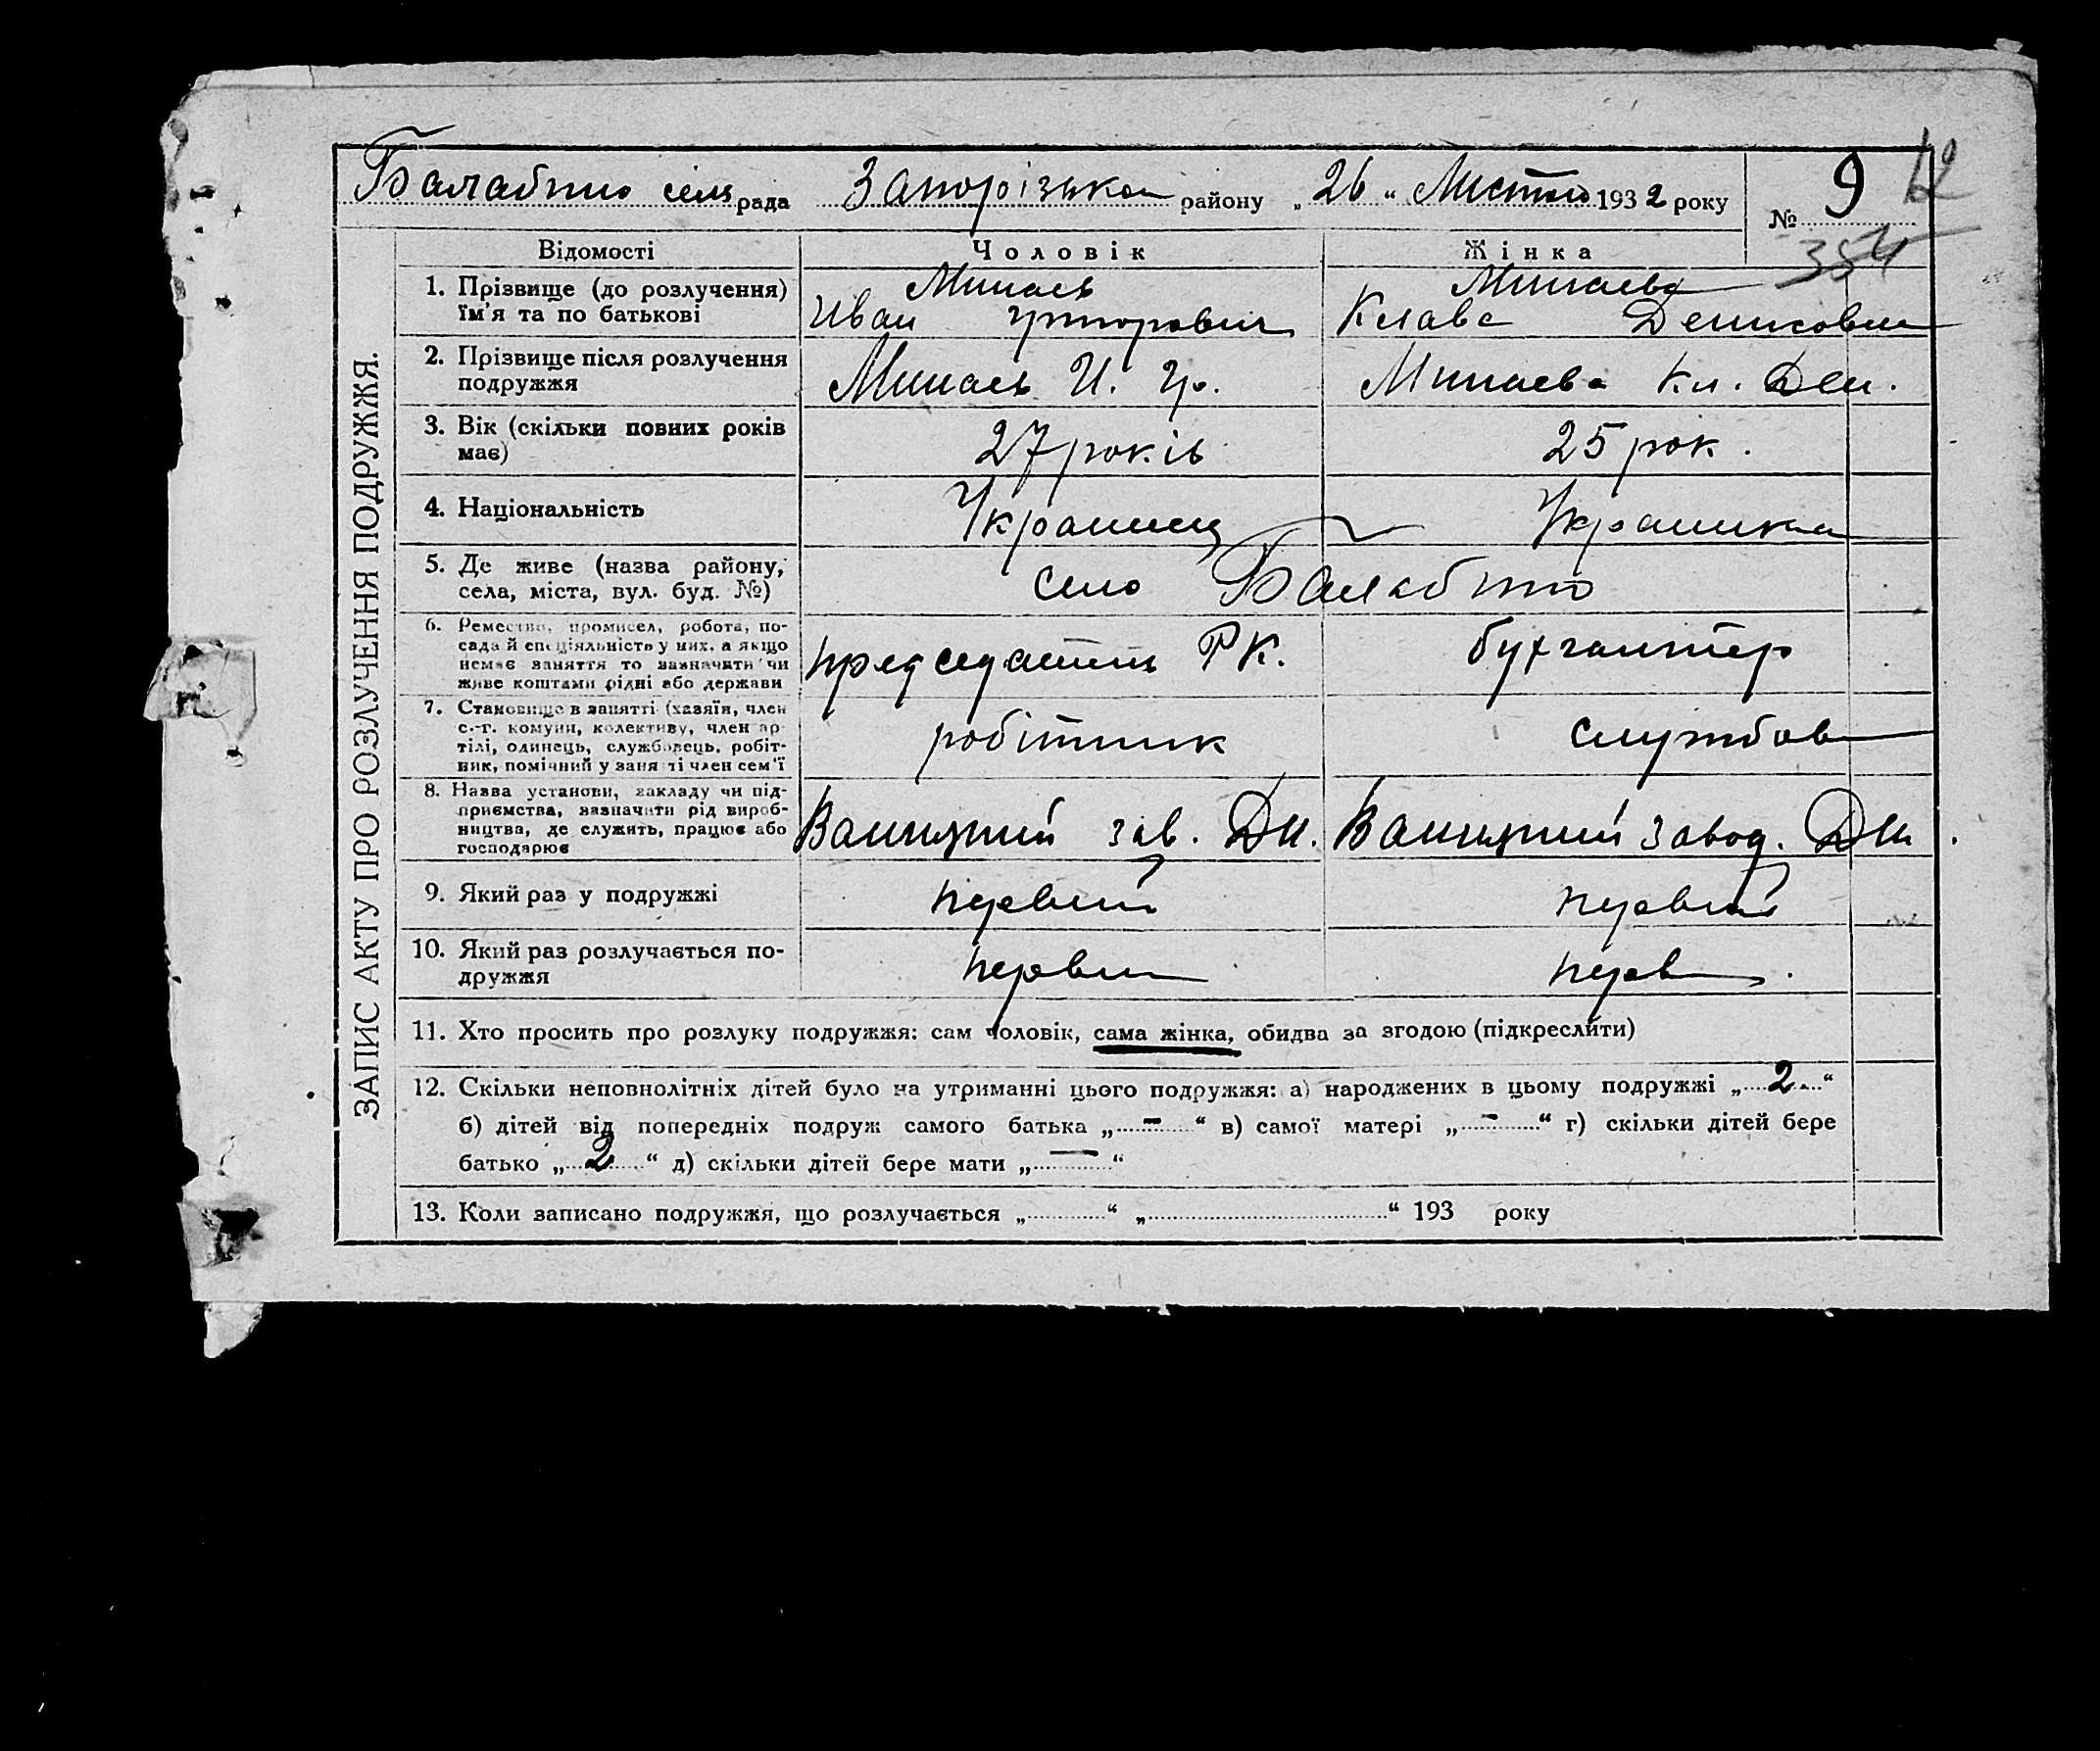 Балабино сель рада Запорізькои району „ 26 “ Листоп 1932 року № 9
12
354
ЗАПИС АКТУ ПРО РОЗЛУЧЕННЯ ПОДРУЖЖЯ.
Відомості Чоловік Жінка
1. Прізвище (до розлучення) їм'я та по батькові
Минаев Иван Григорович
Минаева Клава Денисовна
2. Прізвище після розлучення подружжя
Минаев И. Гр.
Минаева Кл. Ден.
3. Вік (скільки повних років має)
27 років
25 рок.
4. Національність
Украинец
Украинка
5. Де живе (назва району, села, міста, вул. буд. №)
село Балабино
6. Ремество, промисел, робота, по-
сада й спеціяльність у них, а якщо
немає заняття то зазначити чи
живе коштами рідні або держави
председатель РК.
бухгалтер
7. Становище в занятті (хазяїн, член
с.-г. комуни, колективу, член ар-
тілі, одинець, службовець, робіт-
ник, помічний у занятті член сем'ї
робітник
службов
8. Назва установи, закладу чи під-
приємства, зазначити рід вироб-
ництва, де служить, працює або
господарює
зав.
завод.
9. Який раз у подружжі
первий
первий
10. Який раз розлучається по-
дружжя
первий
перв
11. Хто просить про розлуку подружжя: сам чоловік, сама жінка, обидва за згодою (підкреслити)
12. Скільки неповнолітніх дітей було на утриманні цього подружжя: а) народжених в цьому подружжі „ 2 “
б) дітей від попередніх подруж самого батька „ - “ в) самої матері „ - “ г) скільки дітей бере
батько „ 2 “ д) скільки дітей бере мати „ — “
13. Коли записано подружжя, що розлучається „ “ „ “ 193 року